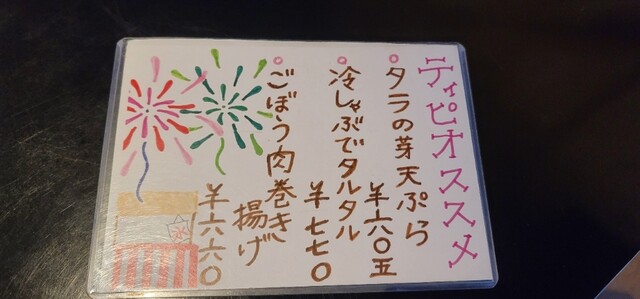 ティピオススメ
タラの芽天ぷら
¥六〇五
冷しゃぶでタルタル
¥七七〇
ごぼう肉巻き
揚げ
¥六六〇
氷